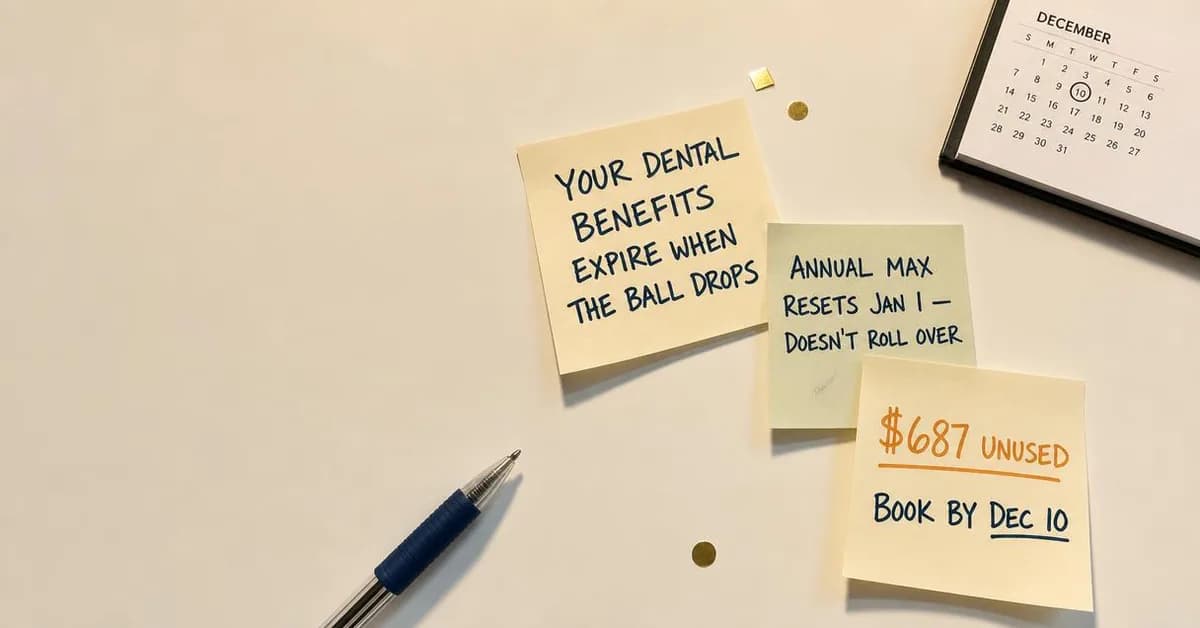 YOUR DENTAL
BENEFITS
EXPIRE WHEN
THE BALL DROPS
ANNUAL MAX
RESETS JAN 1 —
DOESN'T ROLL OVER
$687 UNUSED
BOOK BY DEC 10
DECEMBER
S M T W T F S
1 2 3 4 5 6
7 8 9 10 11 12 13
14 15 16 17 18 19 20
21 22 23 24 25 26 27
28 29 30 31